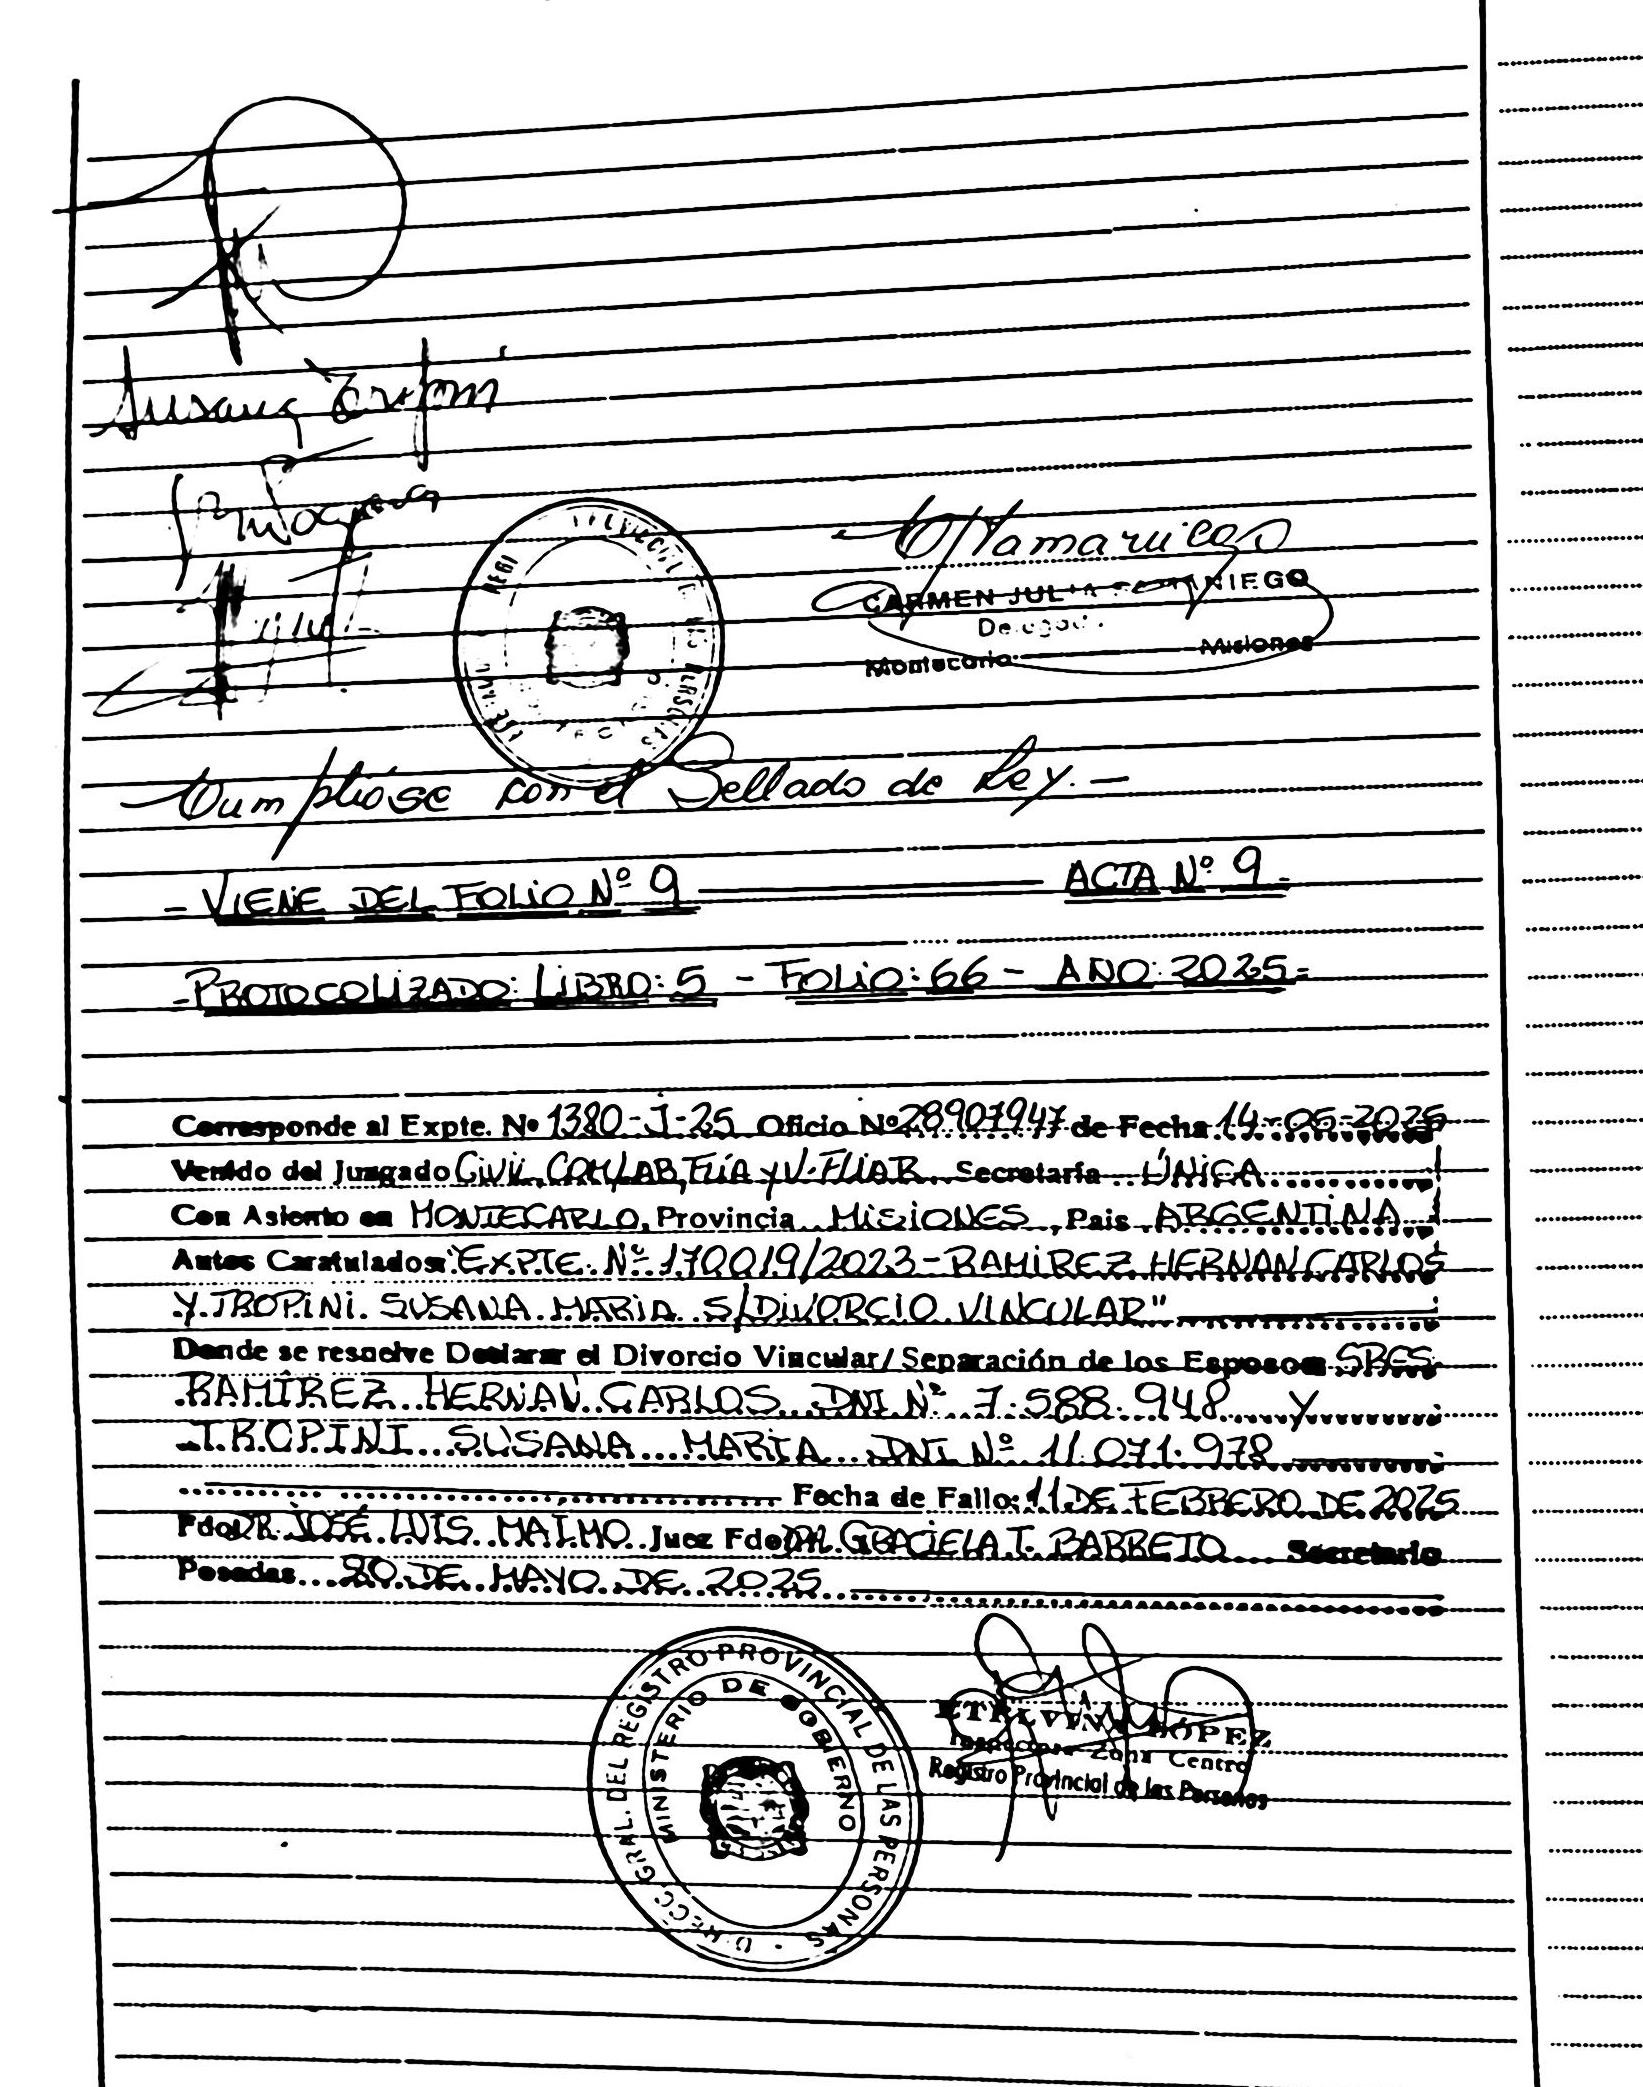 Susana Tropini
CARMEN JULIA
Montecarlo Misiones
Cumplióse con el Sellado de Ley.-
- VIENE DEL FOLIO Nº 9 ACTA Nº 9.-
-PROTOCOLIZADO: LIBRO: 5 - FOLIO: 66 - AÑO: 2025=
Corresponde al Expte. Nº 1380-J-25 Oficio Nº 28907947 de Fecha 14-05-2025
Venido del Juzgado CIVIL, COM, LAB, FLIA y V. FLIAR Secretaría ÚNICA
Con Asiento en MONTECARLO, Provincia MISIONES, Pais ARGENTINA
Autos Caratulados: "EXPTE. Nº 170019/2023 - RAMIREZ HERNAN CARLOS
Y TROPINI SUSANA MARIA S/DIVORCIO VINCULAR"
Donde se resuelve Declarar el Divorcio Vincular/Separación de los Esposos SRES
RAMÍREZ HERNAN CARLOS DNI Nº 7.588.948 Y
TROPINI SUSANA MARIA DNI Nº 11.071.978
Fecha de Fallo: 11 DE FEBRERO DE 2025
Fdo. DR. JOSÉ LUIS MAIMO Juez Fdo. DRA. GRACIELA T. BARRETO Secretario
Posadas 20 DE MAYO DE 2025
DIRECC. GRAL. DEL REGISTRO PROVINCIAL DE LAS PERSONAS
MINISTERIO DE GOBIERNO
ETELVINA LÓPEZ
Inspectora Zona Centro
Registro Provincial de las Personas